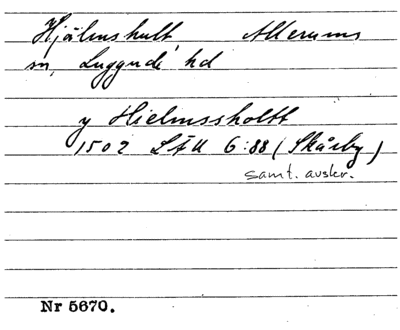 Hjälmshult Allerums
sn, Luggude hd
y Hielmssholtt
1502 LÄU 6:88 (Skårby)
samt. avskr.
Nr 5670.